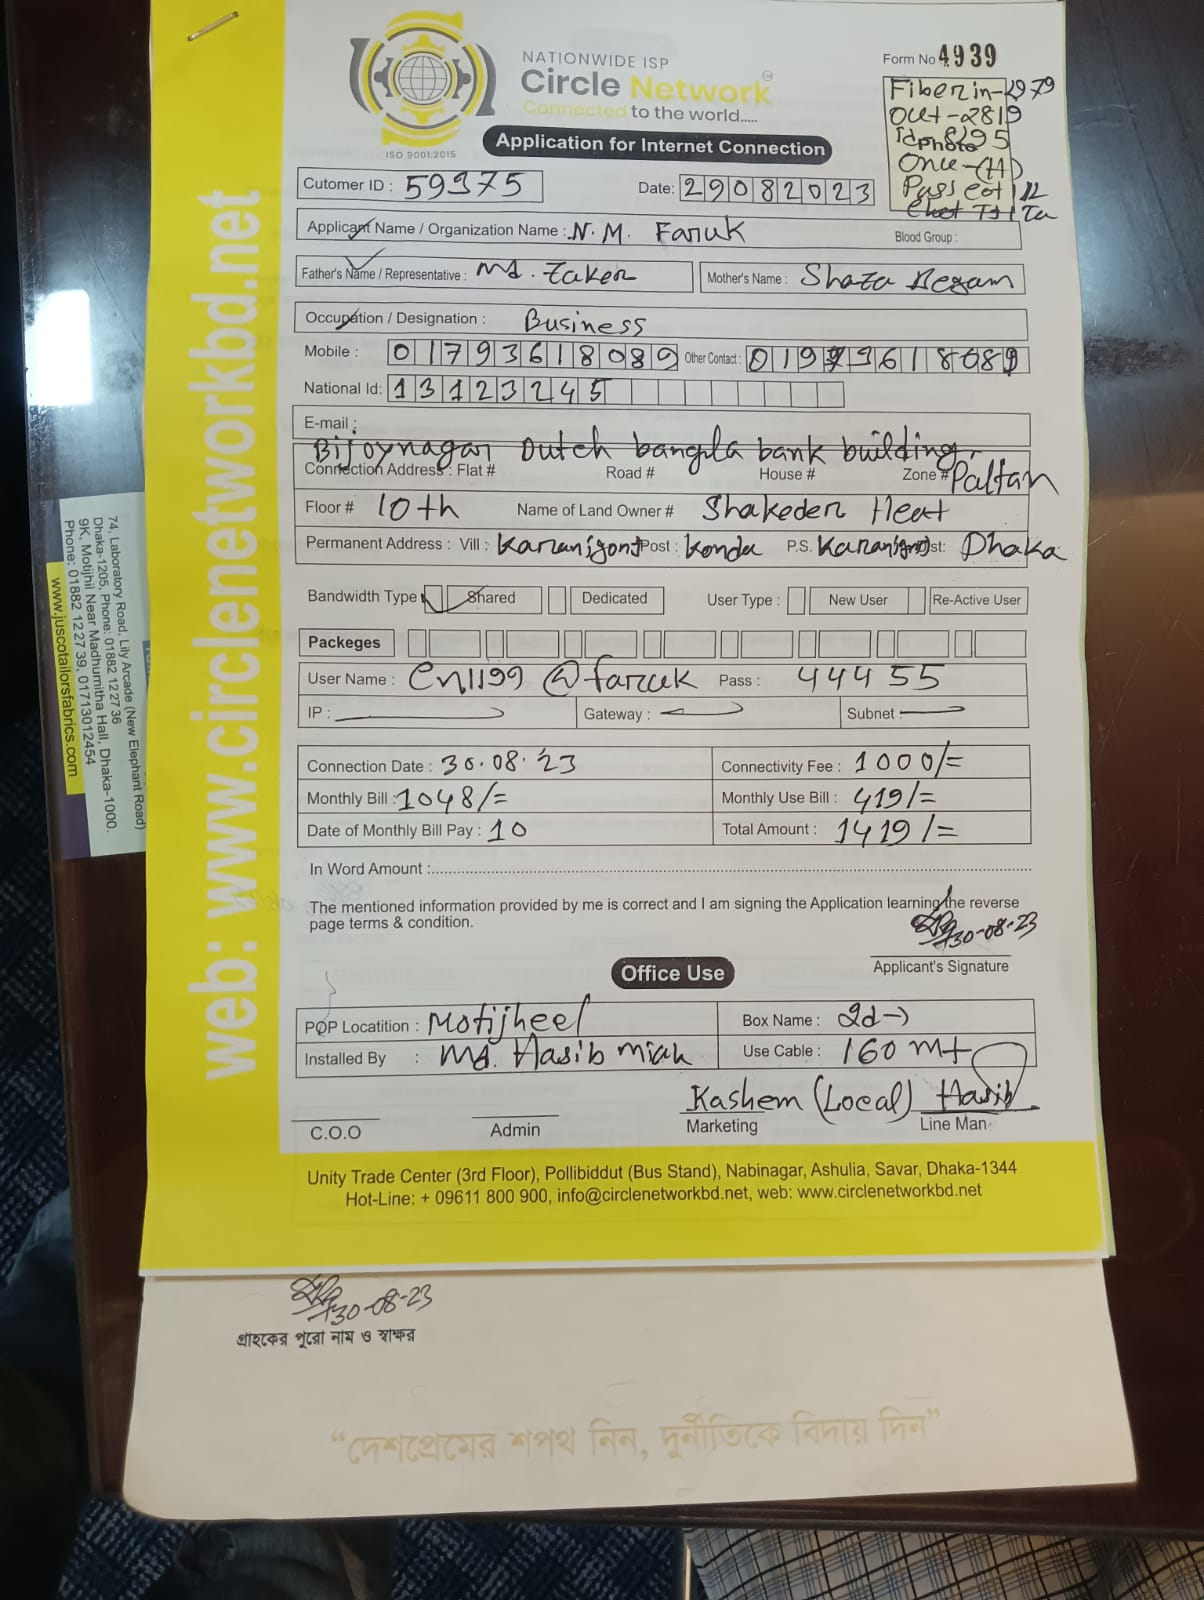 NATIONWIDE ISP
Circle Network
Connected to the world.....
ISO 9001:2015
Form No 4939
Fiber in-2979
Out-2819
Onu-(H)
Application for Internet Connection
Cutomer ID : 59375
Date: 29082023
Applicant Name / Organization Name : N. M. Faruk
Blood Group :
Father's Name / Representative : Md. Zaker
Mother's Name : Shaza Begam
Occupation / Designation : Business
Mobile : 01793618089 Other Contact : 01993618089
National Id: 13123245
E-mail :
Bijoynagar Dutch bangla bank building,
Connection Address : Flat # Road # House # Zone # Paltan
Floor # 10th Name of Land Owner # Shakeder Heat
Permanent Address : Vill : Karanigonj Post : Konda P.S. Karanigonj Dist: Dhaka
Bandwidth Type Shared Dedicated User Type : New User Re-Active User
Packeges
User Name : cn1199@faruk Pass : 44455
IP : Gateway : Subnet
Connection Date : 30.08.'23 Connectivity Fee : 1000/=
Monthly Bill : 1048/= Monthly Use Bill : 419/=
Date of Monthly Bill Pay : 10 Total Amount : 1419/=
In Word Amount :
The mentioned information provided by me is correct and I am signing the Application learning the reverse
page terms & condition.
30-08-23
Applicant's Signature
Office Use
POP Locatition : Motijheel Box Name : 2d
Installed By : Md. Hasib miah Use Cable : 160 mt
Kashem (Local) Hasib
C.O.O Admin Marketing Line Man
Unity Trade Center (3rd Floor), Pollibiddut (Bus Stand), Nabinagar, Ashulia, Savar, Dhaka-1344
Hot-Line: + 09611 800 900, info@circlenetworkbd.net, web: www.circlenetworkbd.net
web: www.circlenetworkbd.net
30-08-23
গ্রাহকের পুরো নাম ও স্বাক্ষর
“দেশপ্রেমের শপথ নিন, দুর্নীতিকে বিদায় দিন”
74, Laboratory Road, Lily Arcade (New Elephant Road)
Dhaka-1205, Phone: 01882 12 27 36
9K, Motijhil Near Madhumitha Hall, Dhaka-1000.
Phone: 01882 12 27 39, 01713012454
www.juscotailorsfabrics.com